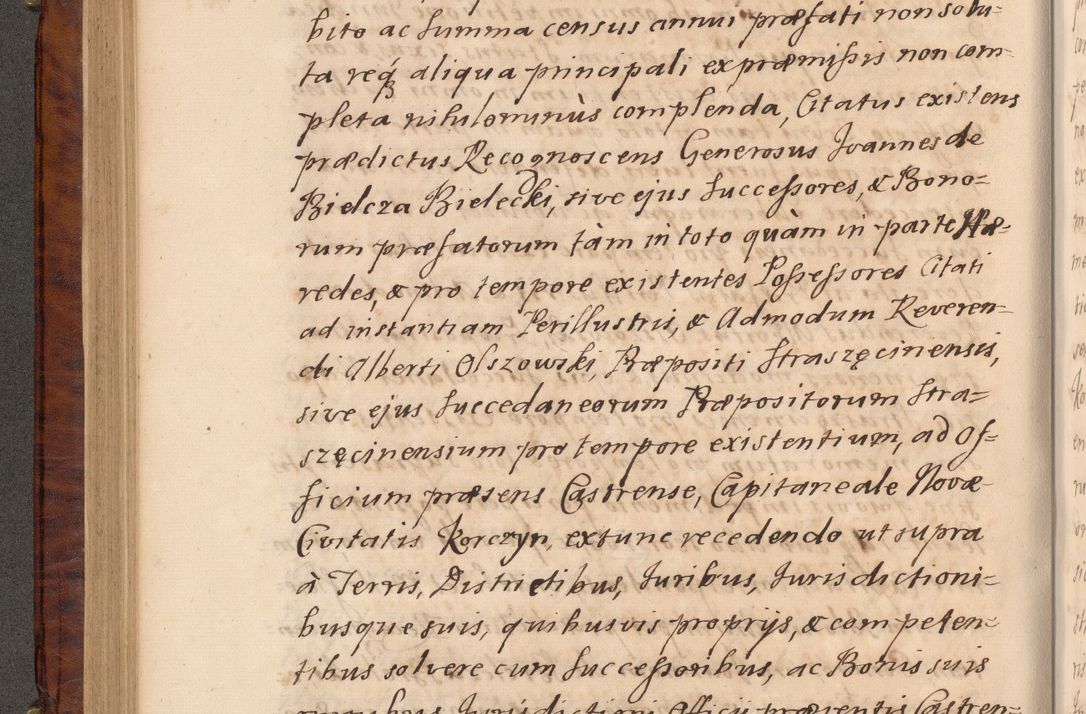 bito ac summa census annui præfati non solu-
ta req₃ aliqua principali ex præmissis non com-
pleta nihilominùs complenda, Citatus existens
prædictus Recognoscens Generosus Joannes de
Bielcza Bielecki, sive ejus Successores, & Bono=
rum præfatorum tàm in toto quàm in parte Hæ=
redes, & pro tempore existentes Possessores Citati
ad instantiam Perillustris, & Admodum Reveren-
di Alberti Olszowski, Præpositi Straszęcinensis,
sive ejus Succedaneorum Præpositorum Stra=
szęcinensium pro tempore existentium, ad Of=
ficium præsens Castrense, Capitaneale Novæ
Civitatis Korczyn, extunc recedendo ut supra
à Terris, Districtibus, Juribus, Jurisdictioni=
busque suis, quibusvis proprijs, & competen=
tibus solvere cum Successoribus, ac Bonis suis
Jurisdictioni Officij præsentis Castren=